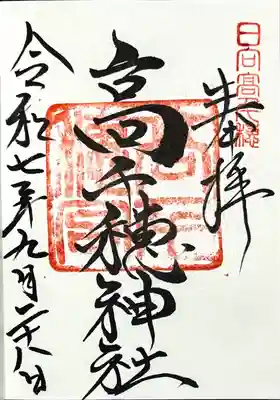 日向高千穂
奉拝
高千穂神社
令和七年九月二十八日